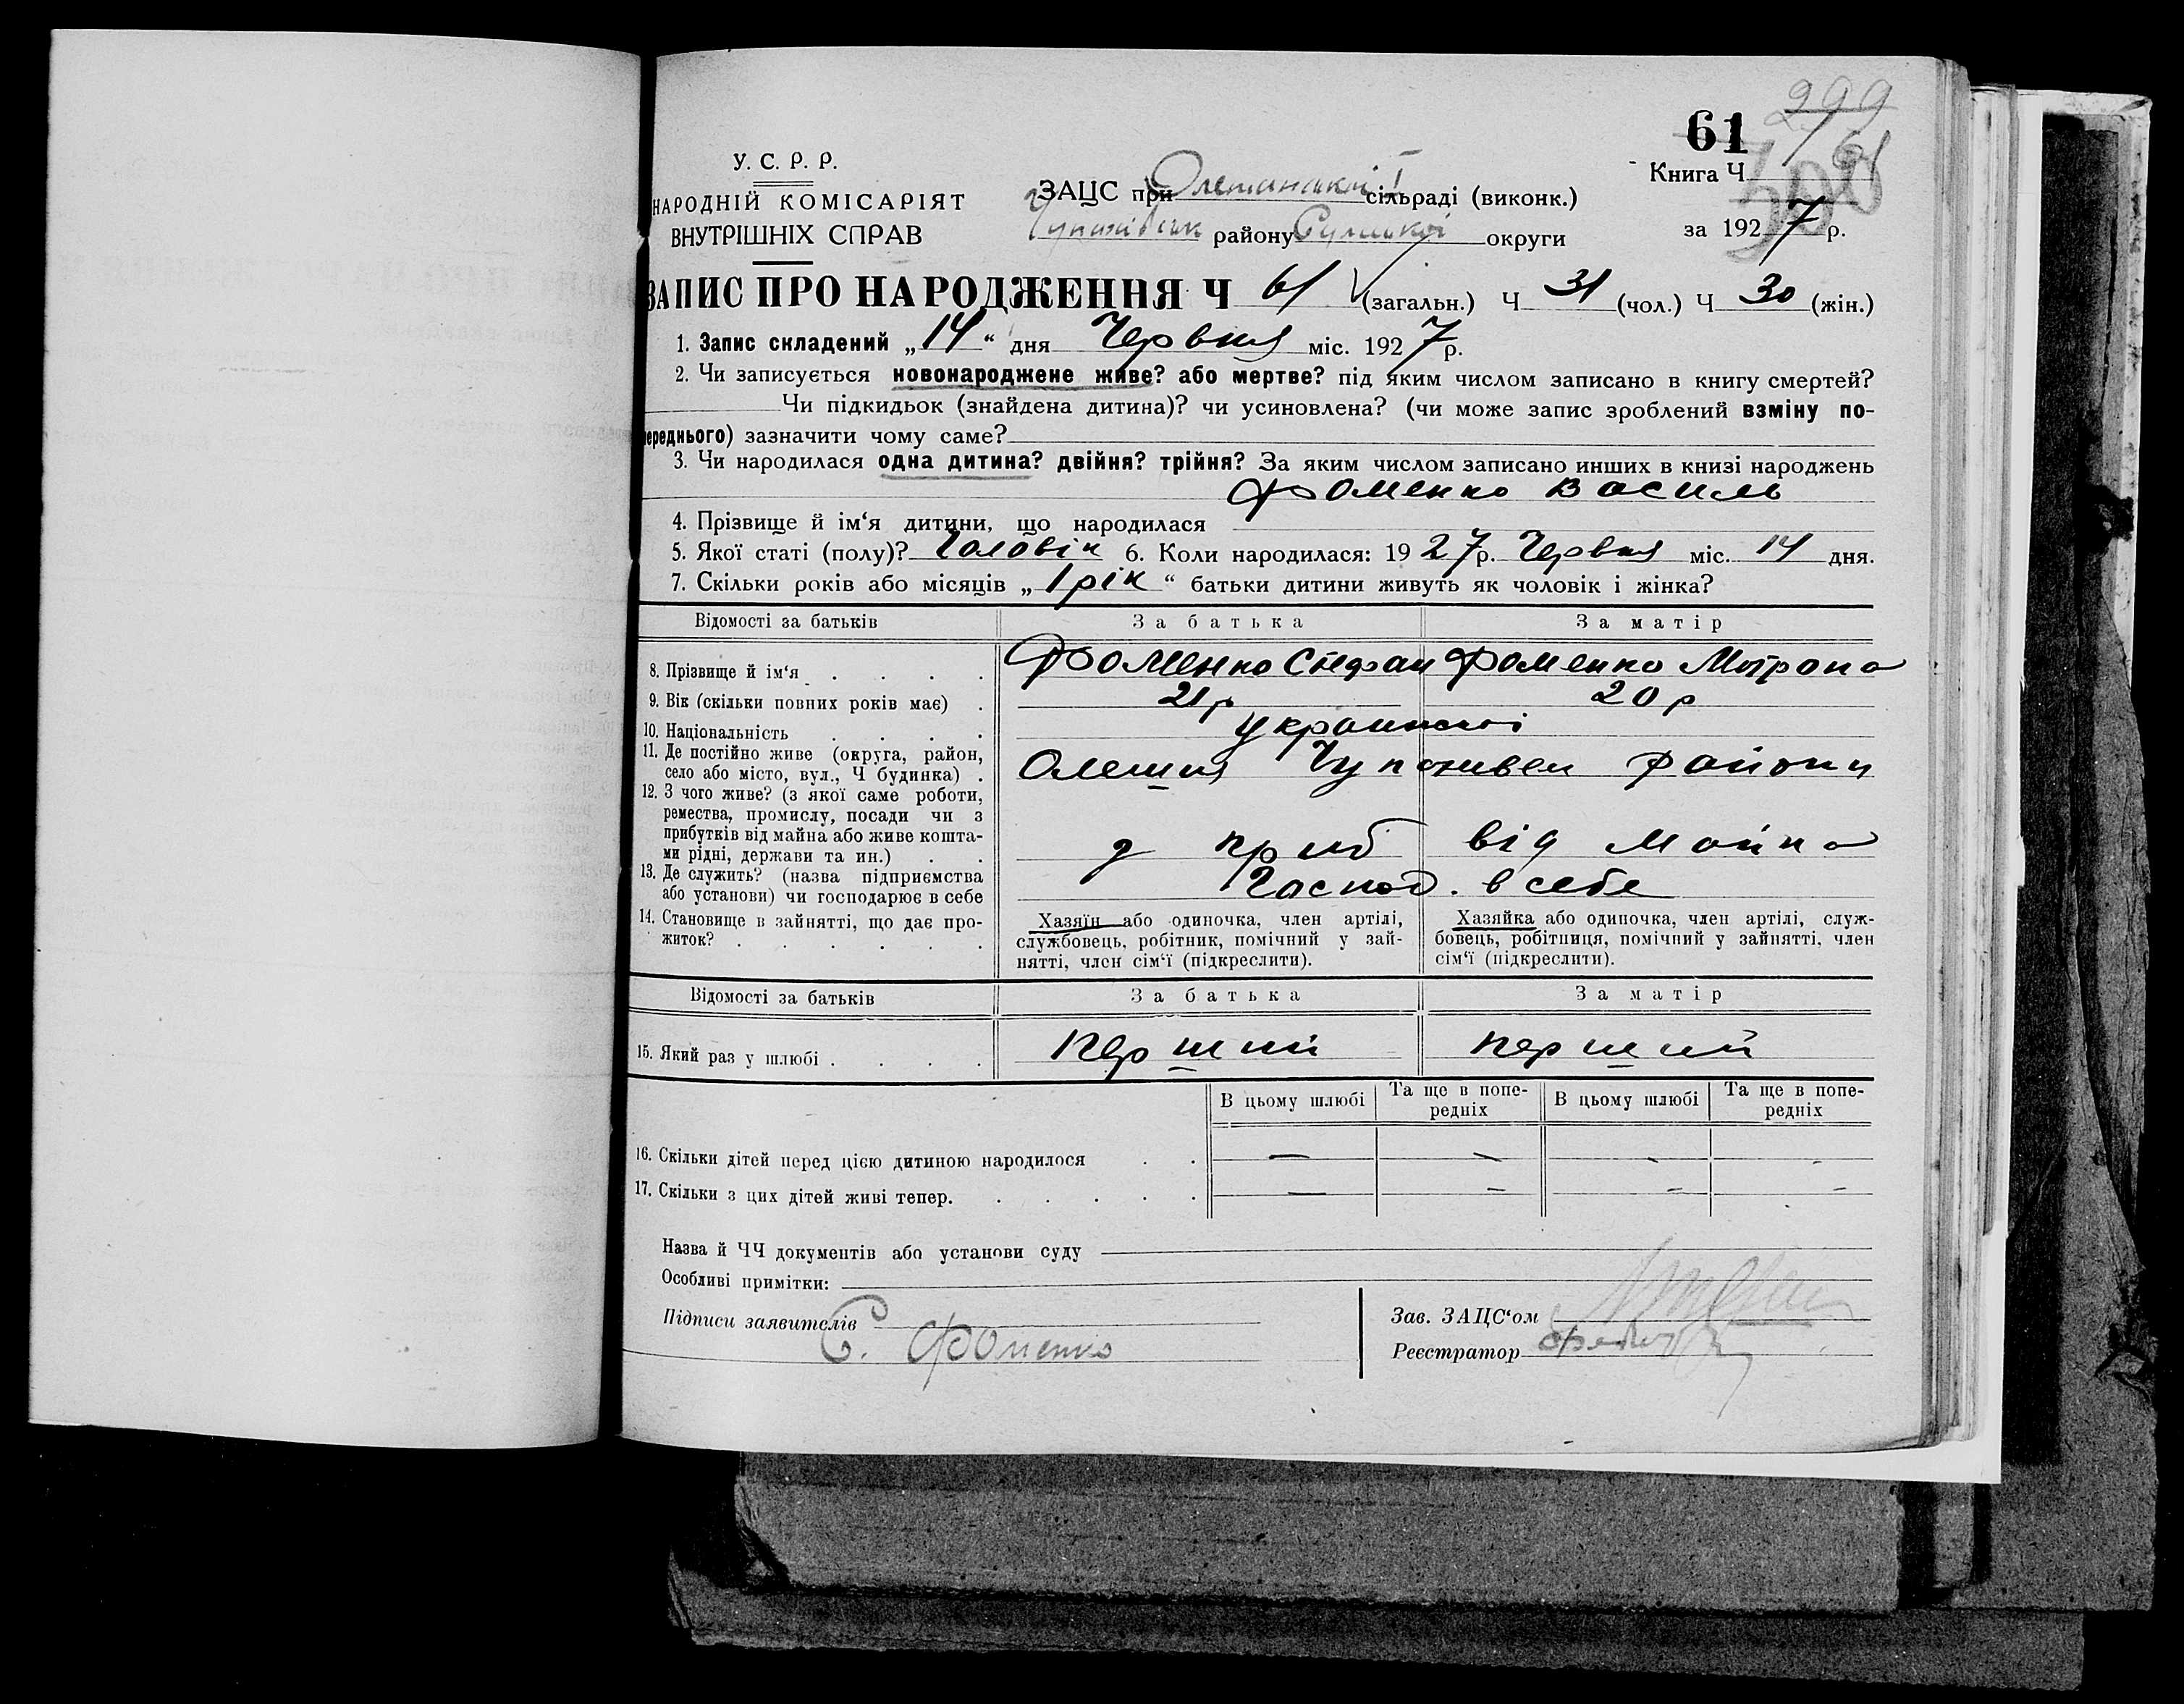 299
61
61
300
У. С. Р. Р.
Книга Ч
НАРОДНІЙ КОМІСАРІЯТ
ЗАЦС при Олешанській І сільраді (виконк.)
ВНУТРІШНІХ СПРАВ
району Сумської округи
за 1927 р.
ЗАПИС ПРО НАРОДЖЕННЯ Ч 61 (загальн.) Ч 31 (чол.) Ч 30 (жін.)
1. Запис складений „14“ дня Червня міс. 1927 р.
2. Чи записується новонароджене живе? або мертве? під яким числом записано в книгу смертей?
Чи підкидьок (знайдена дитина)? чи усиновлена? (чи може запис зроблений взміну по-
переднього) зазначити чому саме?
3. Чи народилася одна дитина? двійня? трійня? За яким числом записано инших в книзі народжень
Фоменко Василь
4. Прізвище й ім‘я дитини, що народилася
5. Якої статі (полу)? Чоловік 6. Коли народилася: 1927р. Червня міс. 14 дня.
7. Скільки років або місяців „1 рік“ батьки дитини живуть як чоловік і жінка?
Відомості за батьків За батька За матір
8. Прізвище й ім‘я . . . . Фоменко Стефан Фоменко Мотрона
9. Вік (скільки повних років має) . 21 р 20 р
10. Національність . . . .
11. Де постійно живе (округа, район,
село або місто, вул., Ч будинка) . Олешня району
12. З чого живе? (з якої саме роботи,
ремества, промислу, посади чи з
прибутків від майна або живе кошта-
ми рідні, держави та ин.) . . з приб від майна
13. Де служить? (назва підприємства
або установи) чи господарює в себе Господ. в себе
14. Становище в зайнятті, що дає про-
житок? . . . . . .
Хазяїн або одиночка, член артілі,
службовець, робітник, помічний у зай-
нятті, член сім‘ї (підкреслити).
Хазяйка або одиночка, член артілі, служ-
бовець, робітниця, помічний у зайнятті, член
сім‘ї (підкреслити).
Відомості за батьків За батька За матір
15. Який раз у шлюбі . . . . перший перший
В цьому шлюбі Та ще в попе-
редніх В цьому шлюбі Та ще в попе-
редніх
16. Скільки дітей перед цією дитиною народилося . . — — - -
17. Скільки з цих дітей живі тепер. . . . . . — - - -
Назва й ЧЧ документів або установи суду
Особливі примітки:
Підписи заявителів
С. Фоменко
Зав. ЗАЦС‘ом
Реєстратор